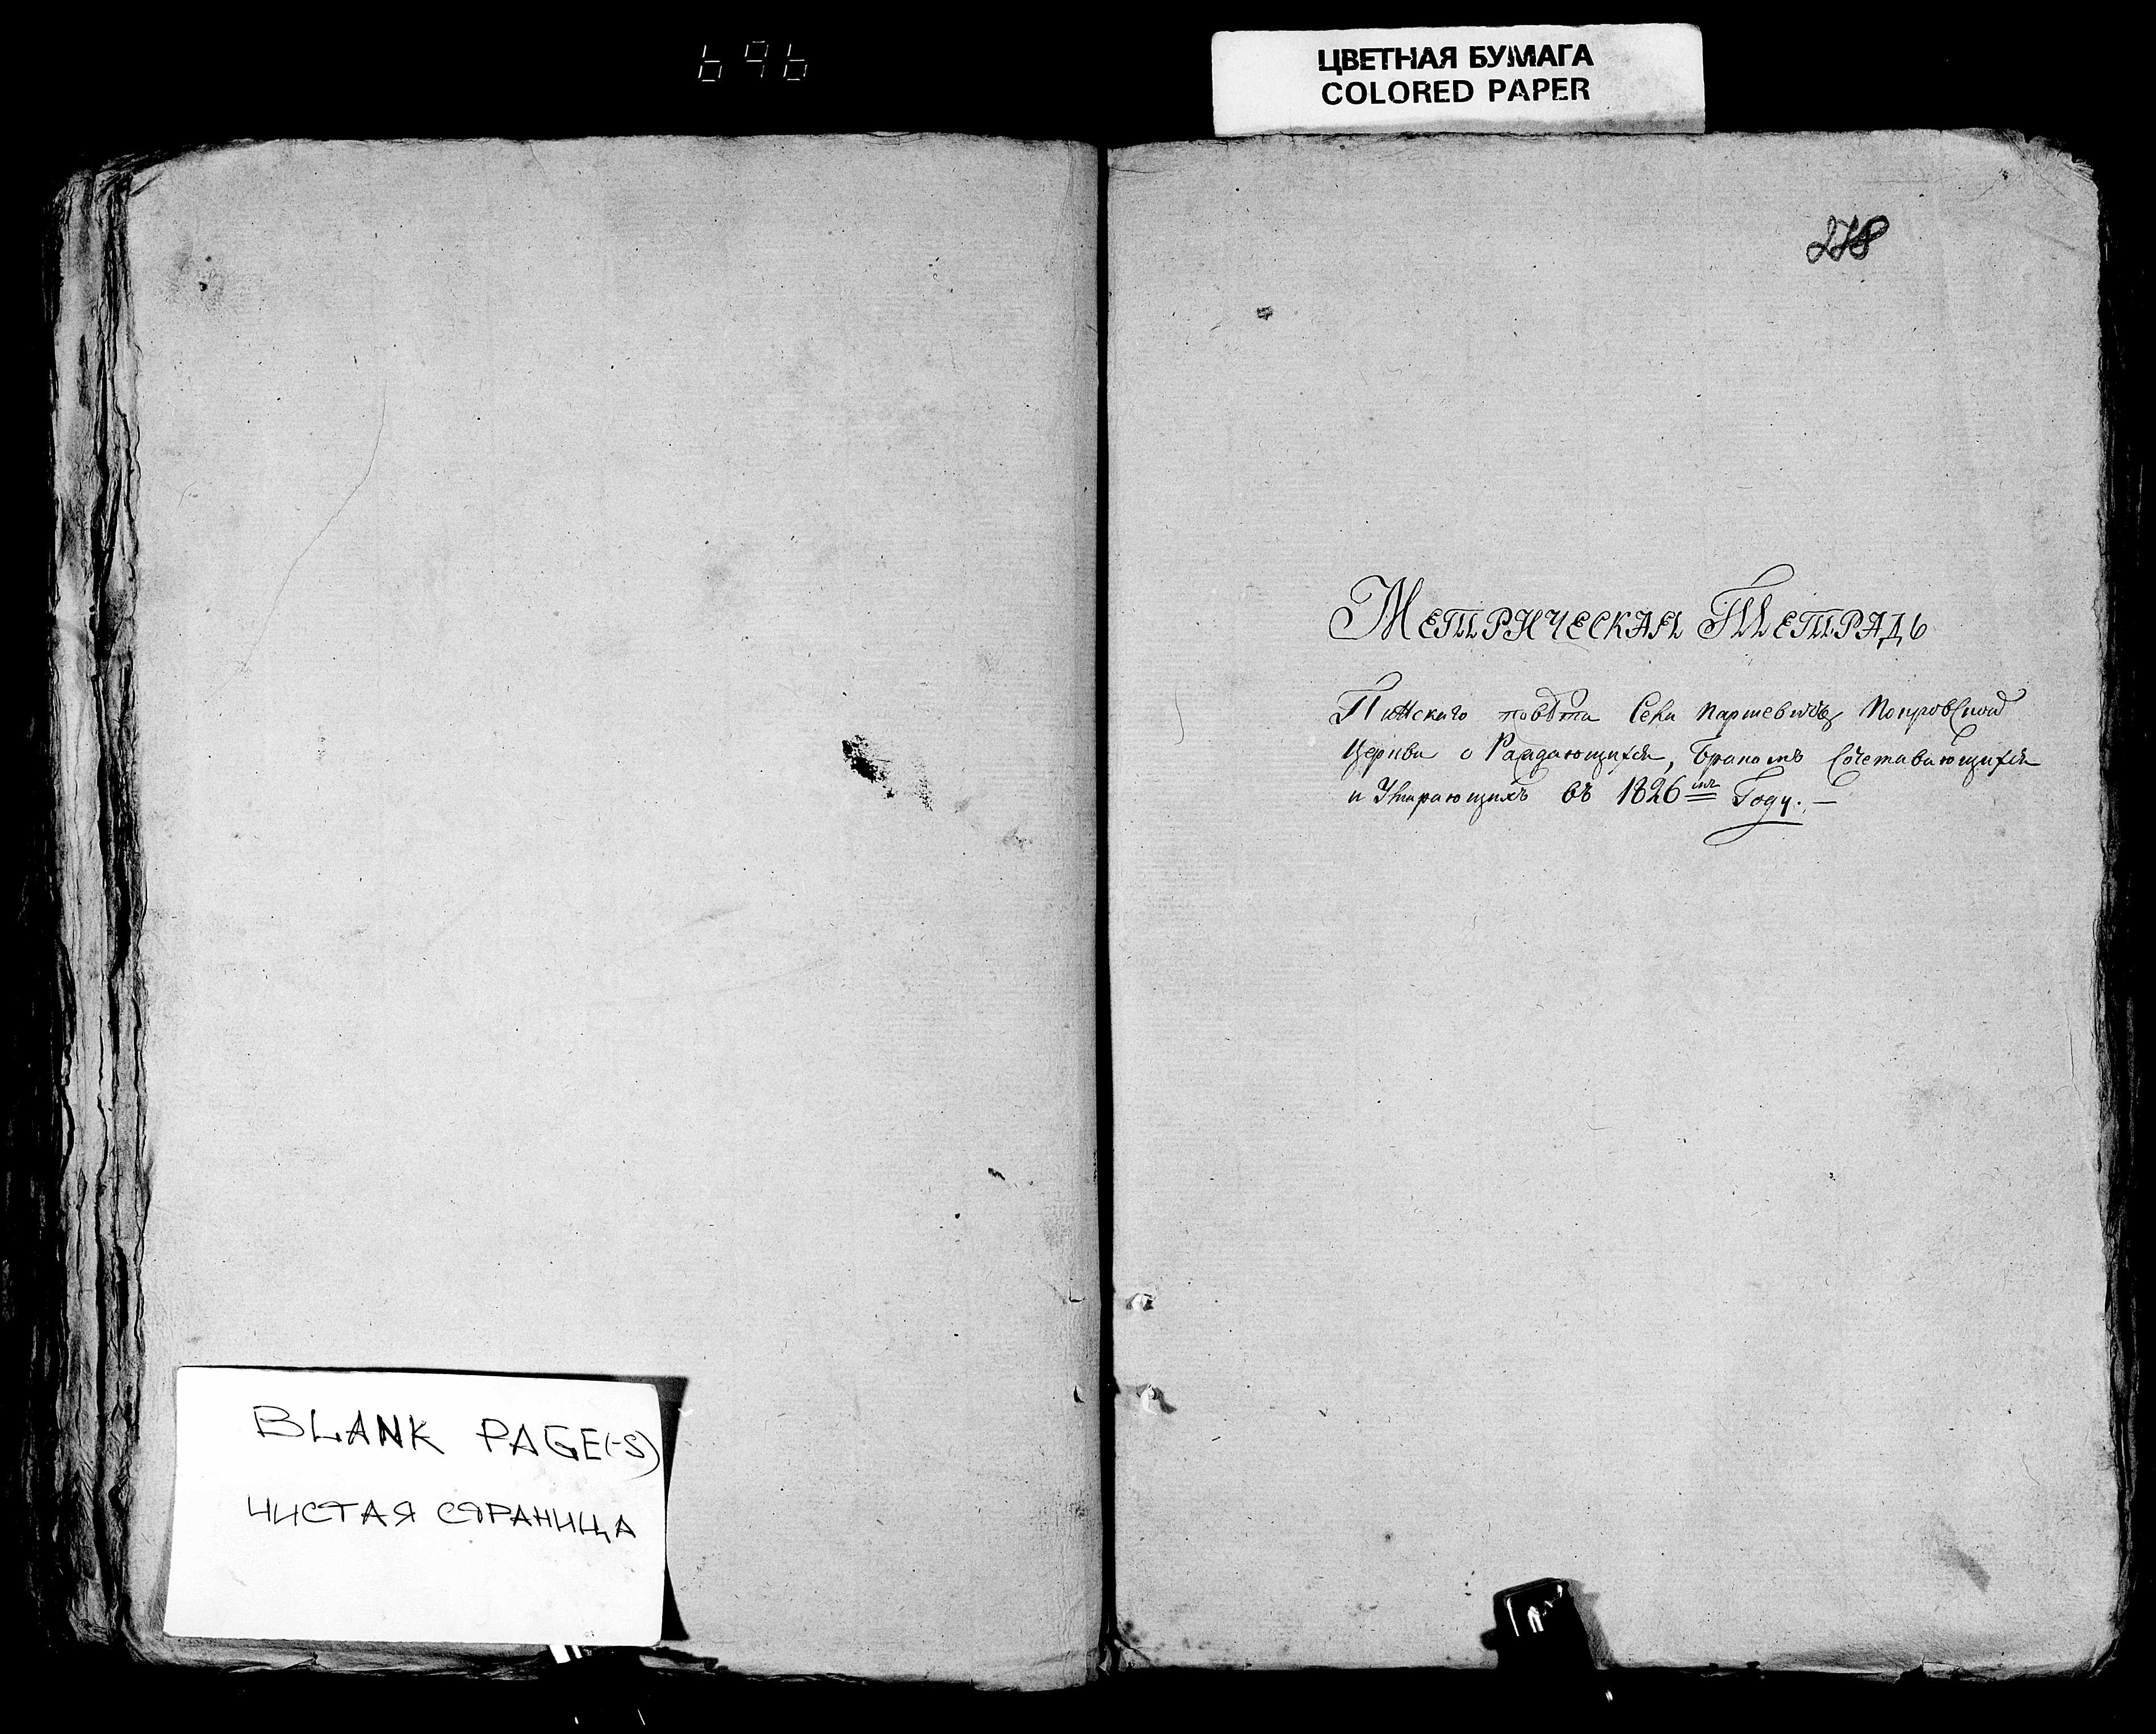 ЦВЕТНАЯ БУМАГА
COLORED PAPER
278
Метрическая Тетрадь
Пинскаго повѣта Села Паршевичь Покровской
Церкви о Раждающихся, Бракомъ Сочетавающихся
и Умирающихъ въ 1826мъ Году. —
BLANK PAGE(-S)
ЧИСТАЯ СТРАНИЦА